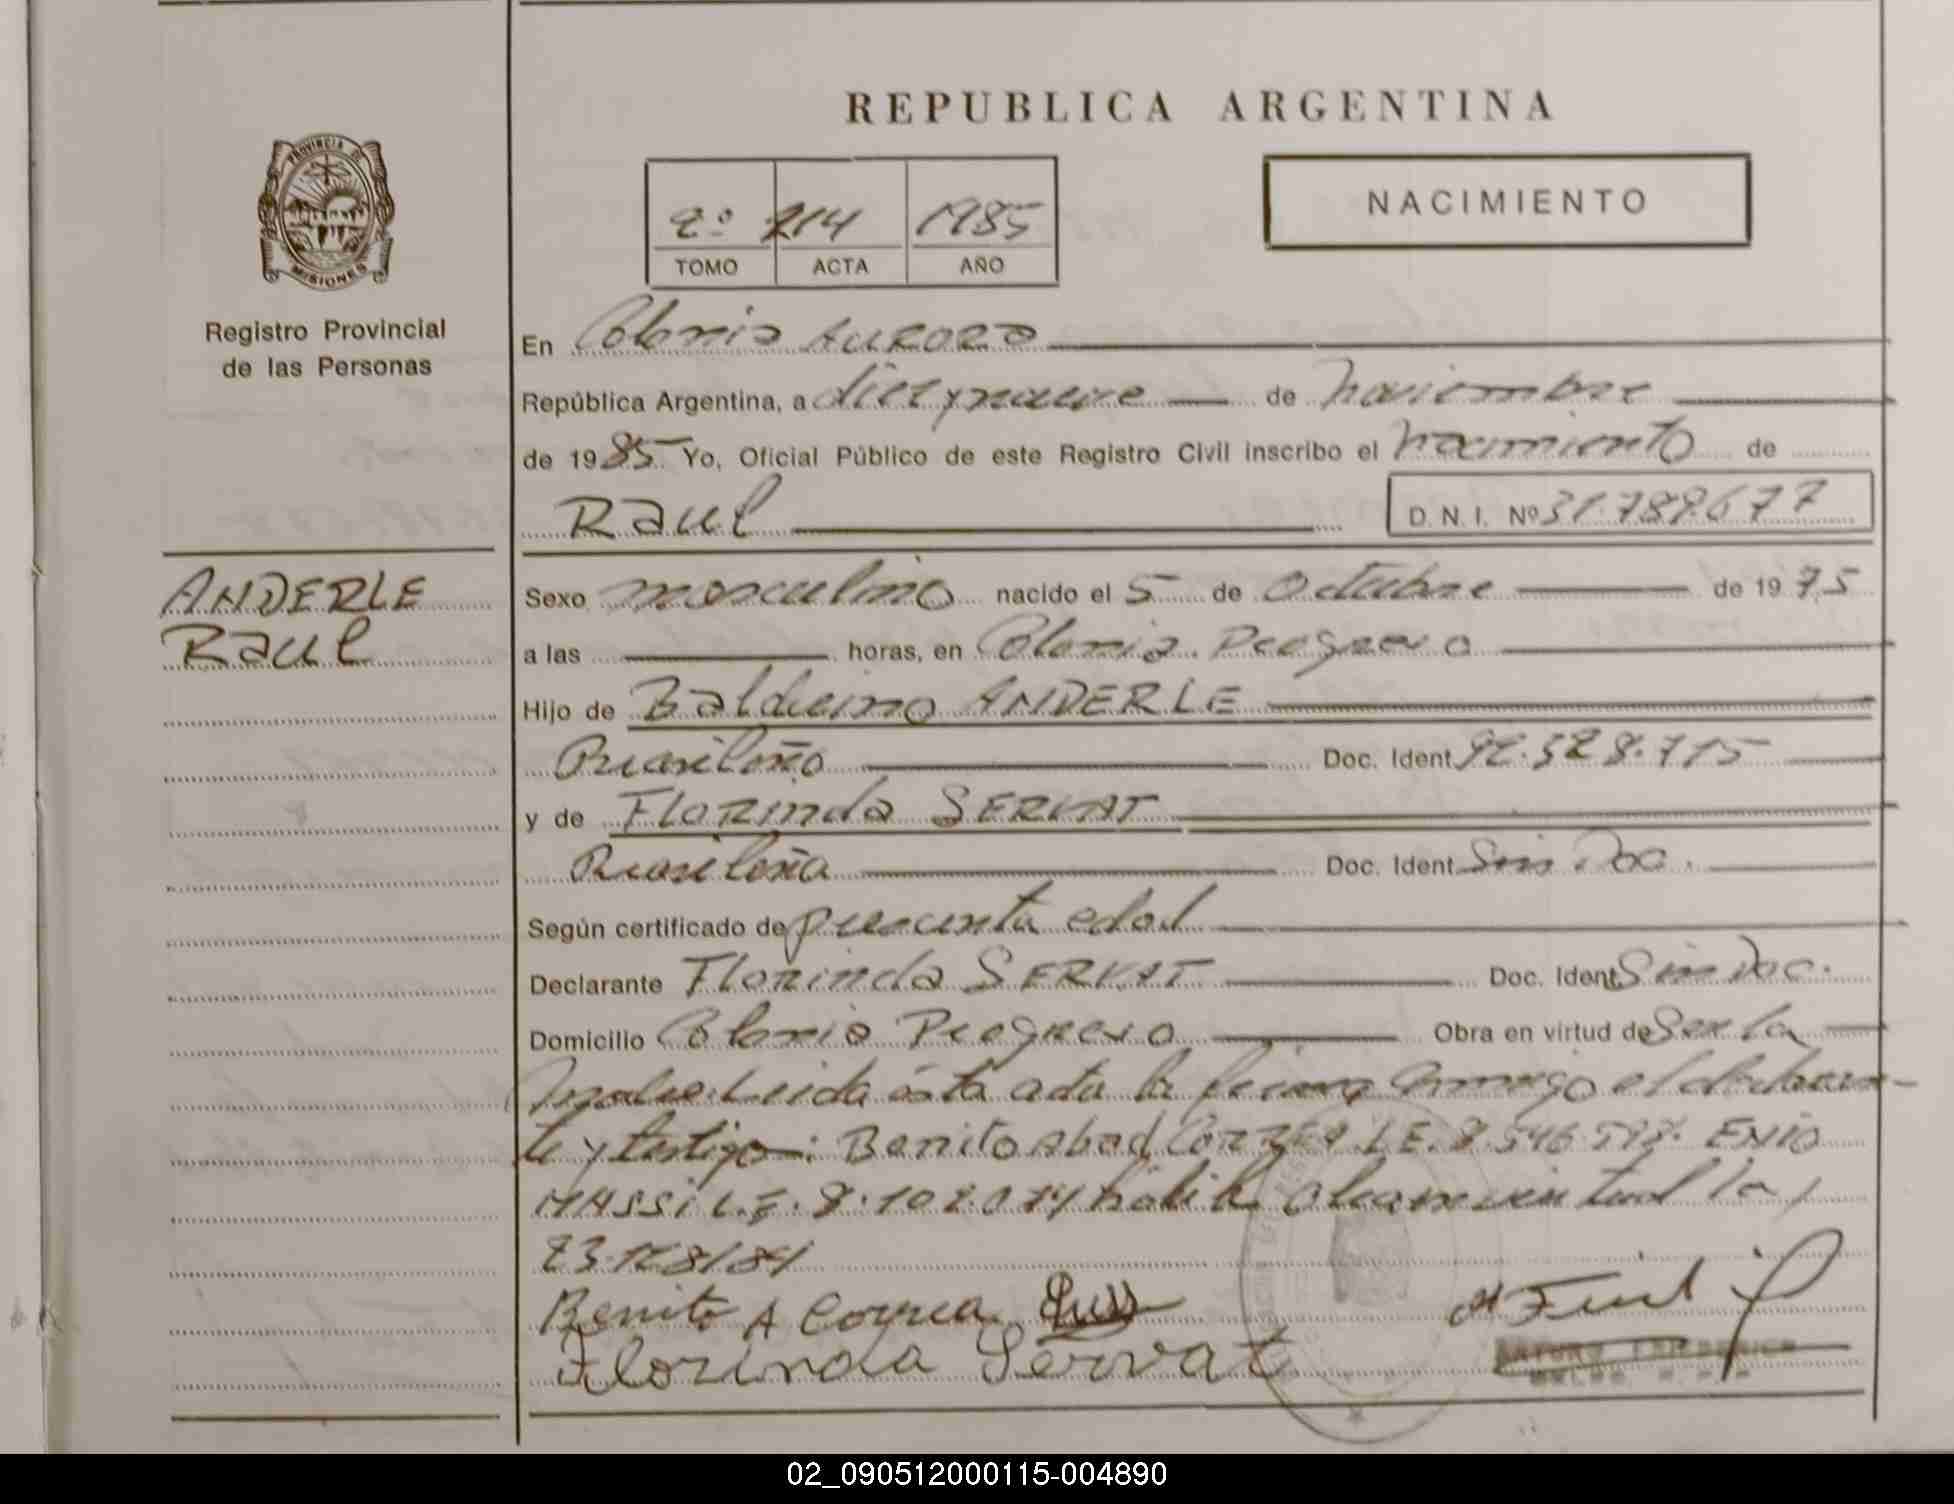 REPUBLICA ARGENTINA
PROVINCIA DE
MISIONES
Registro Provincial
de las Personas
2º 214 1985
TOMO ACTA AÑO
NACIMIENTO
En Colonia AURORA
República Argentina, a diez y nueve de noviembre
de 1985 Yo, Oficial Público de este Registro Civil inscribo el nacimiento de
Raul D. N. I. Nº 31.789.677
ANDERLE
Raul
Sexo masculino nacido el 5 de Octubre de 1975
a las horas, en Colonia Peegrero
Hijo de Balduino ANDERLE
Brasileño Doc. Ident 92.328.715
y de Florinda SERVAT
Brasileña Doc. Ident Sin Doc.
Según certificado de presunta edad
Declarante Florinda SERVAT Doc. Ident Sin Doc.
Domicilio Colonia Peegrero Obra en virtud de Ser la
madre. Leida ésta acta la firma conmigo el declaran-
te y testigo: Benito Abad CORREA L.E. 8.546.593. ENIO
MASSI L.E. 8.102.074 en virtud la
23.128/81
Benito A Correa
Florinda Servat